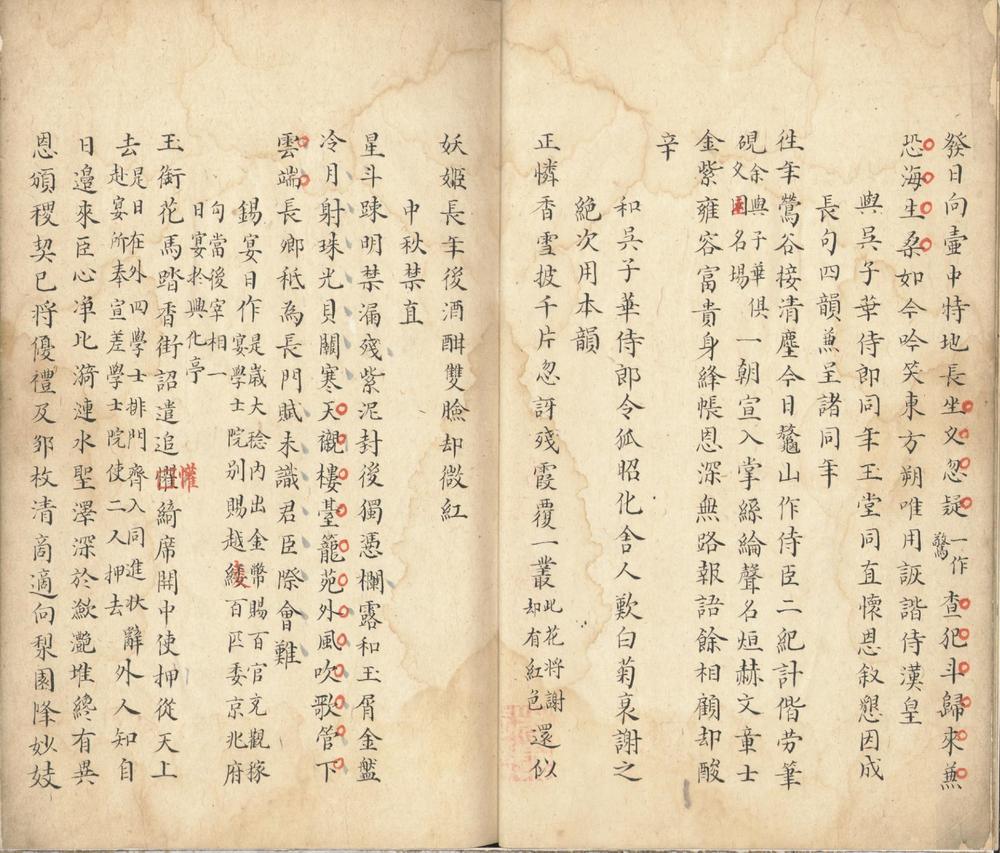 發日向壺中特地長坐久忽疑一作驚查犯斗歸來兼
恐海生桑如今吟笑東方朔唯用詼諧侍漢皇
與吳子華侍郎同年玉堂同直懷恩敘懇因成
長句四韻兼呈諸同年
徃年鶯谷接清塵今日鼇山作侍臣二紀計偕勞筆
硯余與子華俱久困名場一朝宣入掌絲綸聲名烜赫文章士
金紫雍容富貴身絳帳恩深無路報語餘相顧却酸
辛
和吳子華侍郎令狐昭化舍人歎白菊衰謝之
絶次用本韻
正憐香雪披千片忽訝殘霞覆一叢此花將謝却有紅色還似
妖姬長年後酒酣雙臉却微紅
中秋禁直
星斗踈明禁漏殘紫泥封後獨憑欄露和玉屑金盤
冷月射珠光貝闕寒天襯樓臺籠苑外風吹歌管下
雲端長卿秪為長門賦未識君臣際會難
錫宴日作是歲大稔內出金幣賜百官充觀稼宴學士院別賜越綾百匹委京兆府
勾當後宰相一日宴於興化亭
玉銜花馬踏香街詔遣追懽懽綺席開中使押從天上
去是日在外四學士排門齊入同進狀辭赴宴所奉宣差學士院使二人押去外人知自
日邉來臣心凈比漪連水聖澤深於瀲灧堆纔有異
恩頒稷契已將優禮及鄒枚清商適向梨園降妙妓